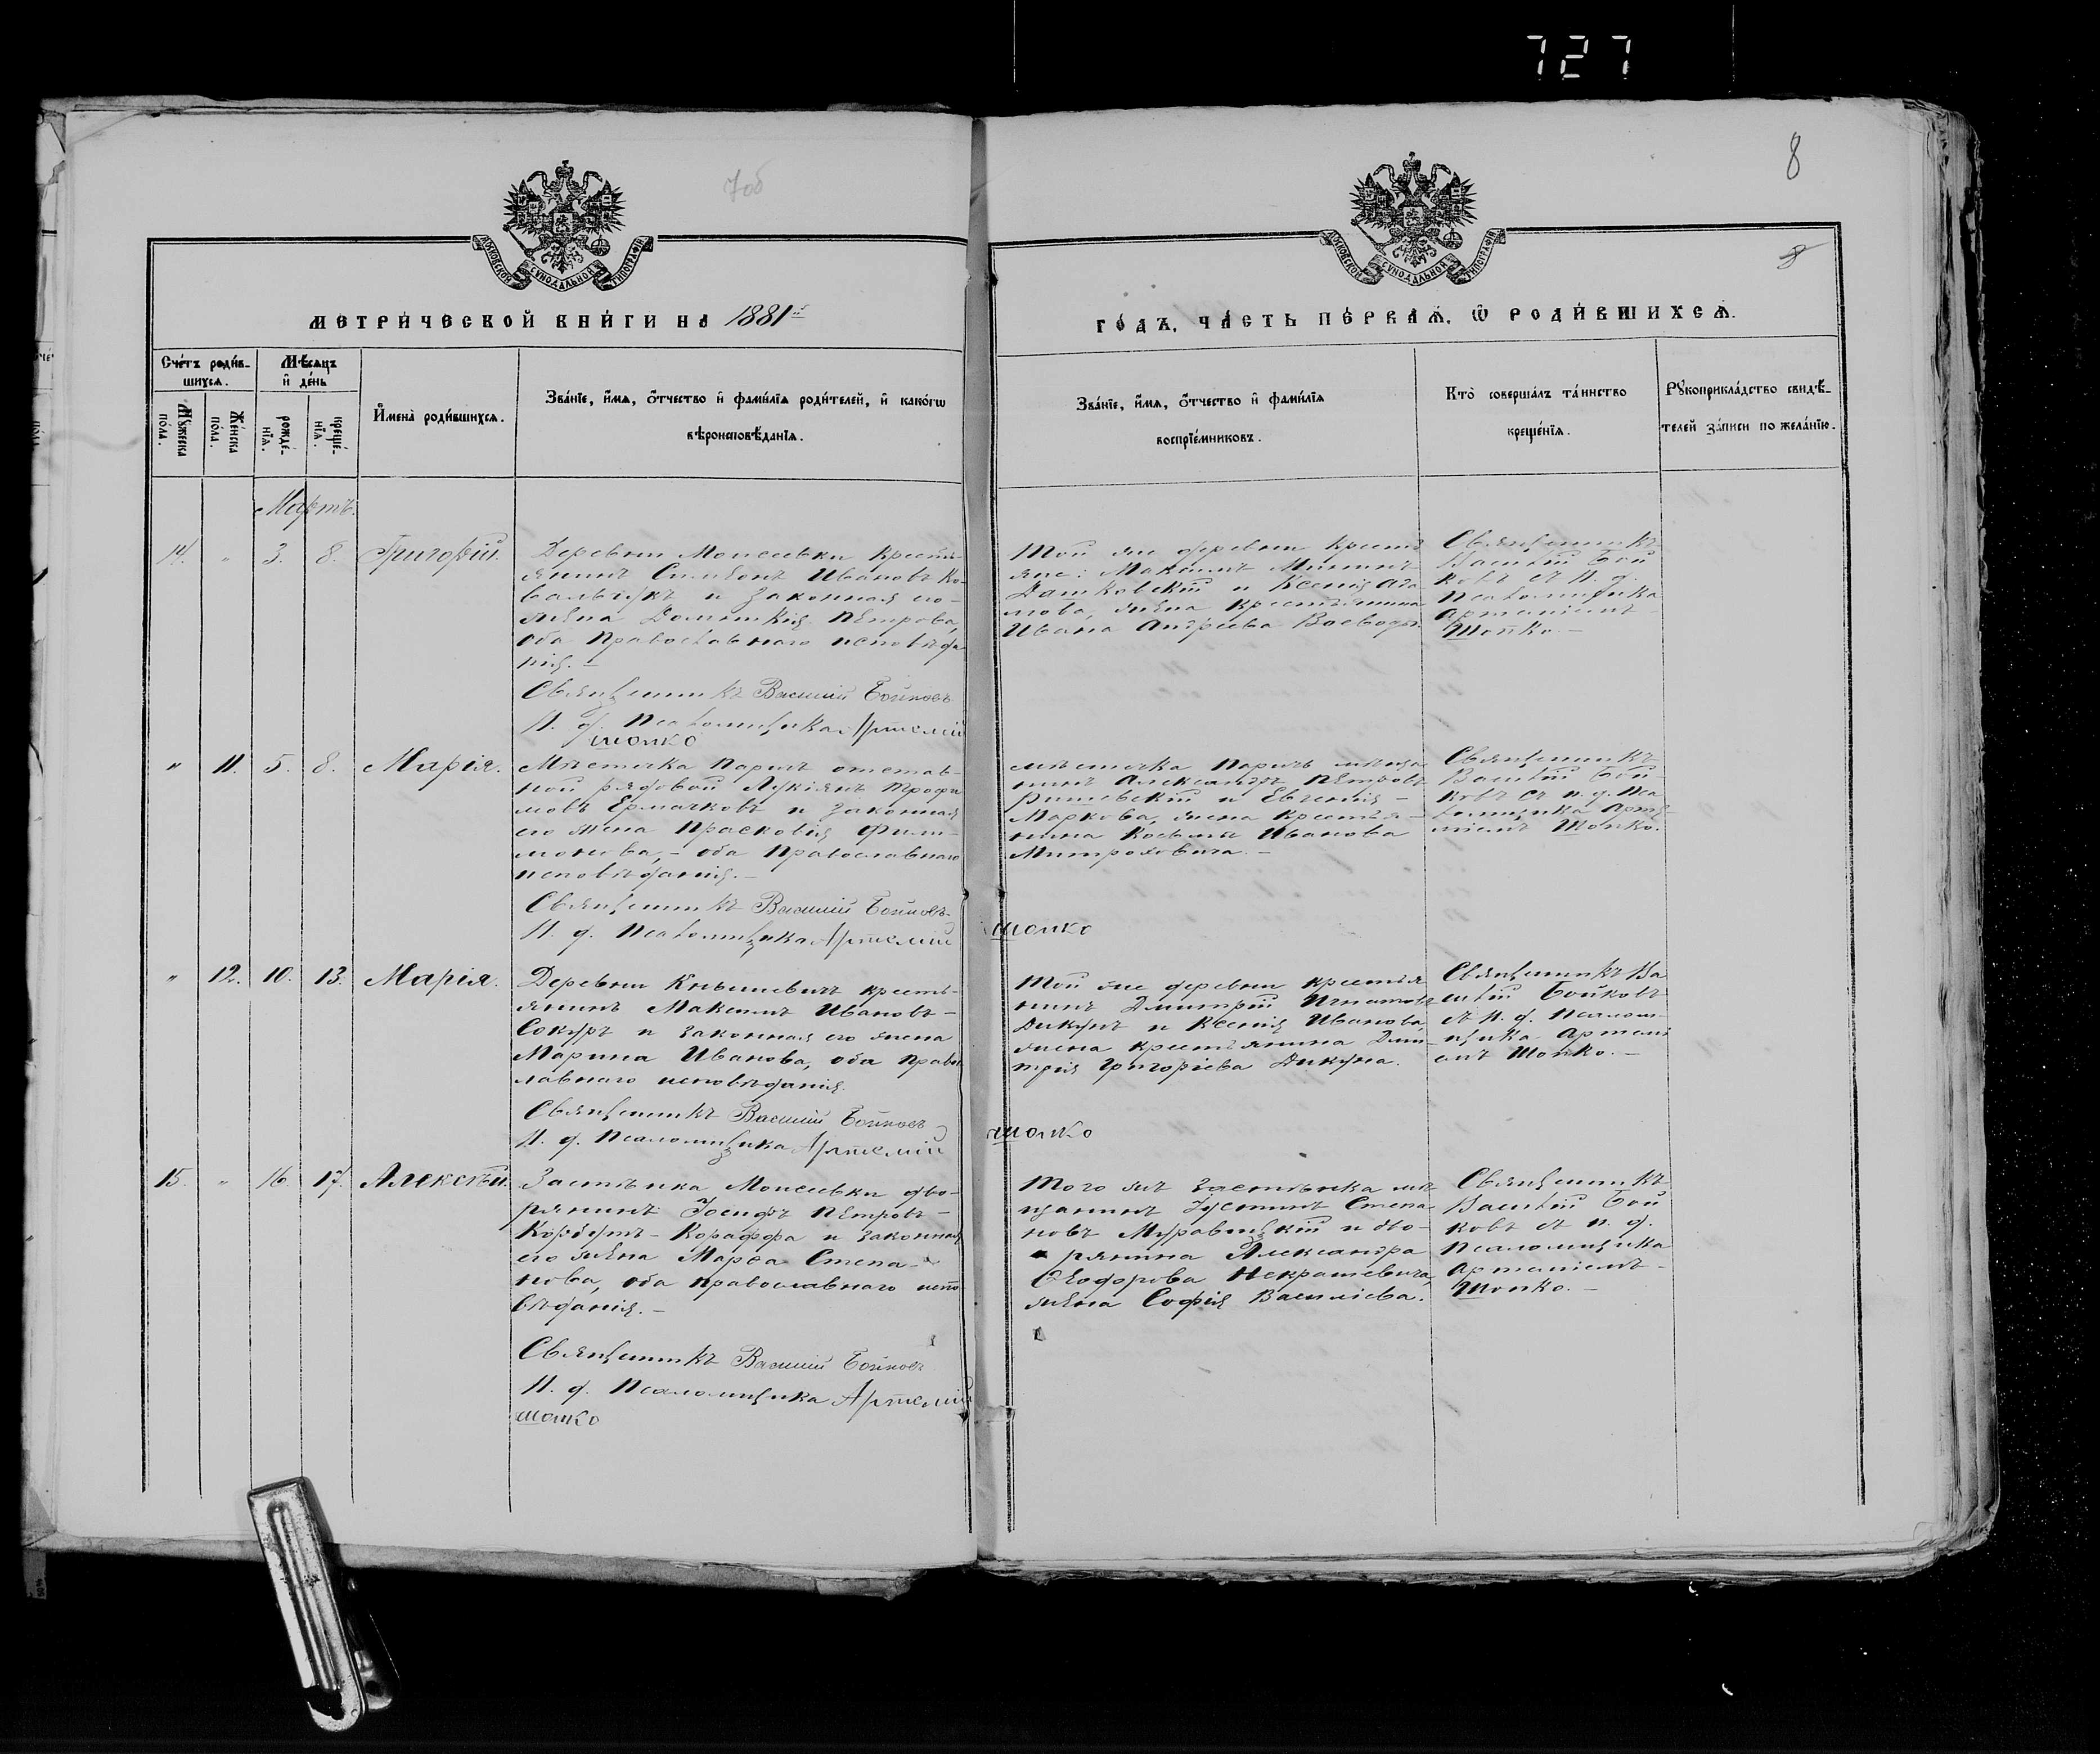 727
7об
8
8
МОСКОВСКОЙ СѴНОДАЛЬНОЙ ТИПОГРАФІИ
МОСКОВСКОЙ СѴНОДАЛЬНОЙ ТИПОГРАФІИ
МЕТРИ́ЧЕСКОЙ КНИ́ГИ НА 1881й
ГО́ДЪ, ЧА́СТЬ ПЕ́РВАѦ, Ѿ РОДИ́ВШИХСѦ.
Сче́тъ роди́в-
шихсѧ.
Мѣ́сѧцъ
и҆ де́нь
Мꙋ́жеска по́ла.
Же́нска по́ла.
рожде́-
нїѧ.
креще́-
нїѧ.
И҆мена̀ роди́вшихсѧ.
Зва́нїе, и҆́мѧ, о҆́тчество и҆ фами́лїѧ роди́телей, и҆ како́гѡ
вѣроисповѣ́данїѧ.
Зва́нїе, и҆́мѧ, о҆́тчество и҆ фами́лїѧ
воспрїе́мниковъ.
Кто̀ соверша́лъ та́инство
креще́нїѧ.
Рꙋкоприкла́дство свидѣ́-
телей за́писи по жела́нїю.
Мартъ.
14. " 3. 8. Григорій.
Деревни Моисеевки кресть-
янинъ Симеонъ Ивановъ Ко-
вальчукъ и законная его
жена Домникія Петрова,
оба православнаго исповѣда-
нія. –
Священникъ Василій Бойковъ
И. д. Псаломщика Артемій
Шопко
Той же деревни кресть
яне: Максимъ Мининъ
Дашковскій и Ксенія Ада
мова, жена крестьянина
Ивана Андреева Воеводы.
Священникъ
Василій Бой
ковъ съ И. д.
Псаломщика
Артеміемъ
Шопко. –
" 11. 5. 8. Марія.
Мѣстечка Паричъ отстав-
ной рядовой Лукіянъ Трофи
мовъ Ермачковъ и законная
его жена Прасковія Фили-
монова, – оба Православнаго
исповѣданія. –
Священникъ Василій Бойковъ
И. д. Псаломщика Артемій
Шопко
мѣстечка Паричъ мѣща
нинъ Александръ Петровъ
и Евгенія –
Маркова, жена крестья-
нина Косьмы Иванова
Митроховича. –
Священникъ
Василій Бой
ковъ съ и. д. Пса
ломщика Арте
міемъ Шопко.
" 12. 10. 13. Марія.
Деревни Кнышевичъ кресть-
янинъ Максимъ Ивановъ –
Сокуръ и законная его жена
Марина Иванова, оба право
лавнаго исповѣданія.
Священникъ Василій Бойковъ
И. д. Псаломщика Артемій
Шопко
Той же деревни крестья
нинъ Димитрій Игнатовъ
Дикунъ и Ксенія Иванова,
жена крестьянина Дми-
трія Григоріева Дикуна.
Священникъ Ва
силій Бойковъ
съ И. д. Псалом-
щика Артемі
емъ Шопко. –
15. " 16. 17. Алексѣй.
Застѣнка Моисеевки дво-
рянинъ Іосифъ Петровъ –
Корбутъ – и законная
его жена Марѳа Степа-
нова, оба православнаго испо
вѣданія. –
Священникъ Василій Бойковъ
И. д. Псаломщика Артемій
Шопко
Того жъ застѣнка мѣ
щанинъ Іустинъ Степа
новъ Муравицкій и дво-
рянина Александра
Ѳеодорова Некрашевича
жена Софія Василіева.
Священникъ
Василій Бой
ковъ съ и. д.
Псаломщика
Артеміемъ –
Шопко. –